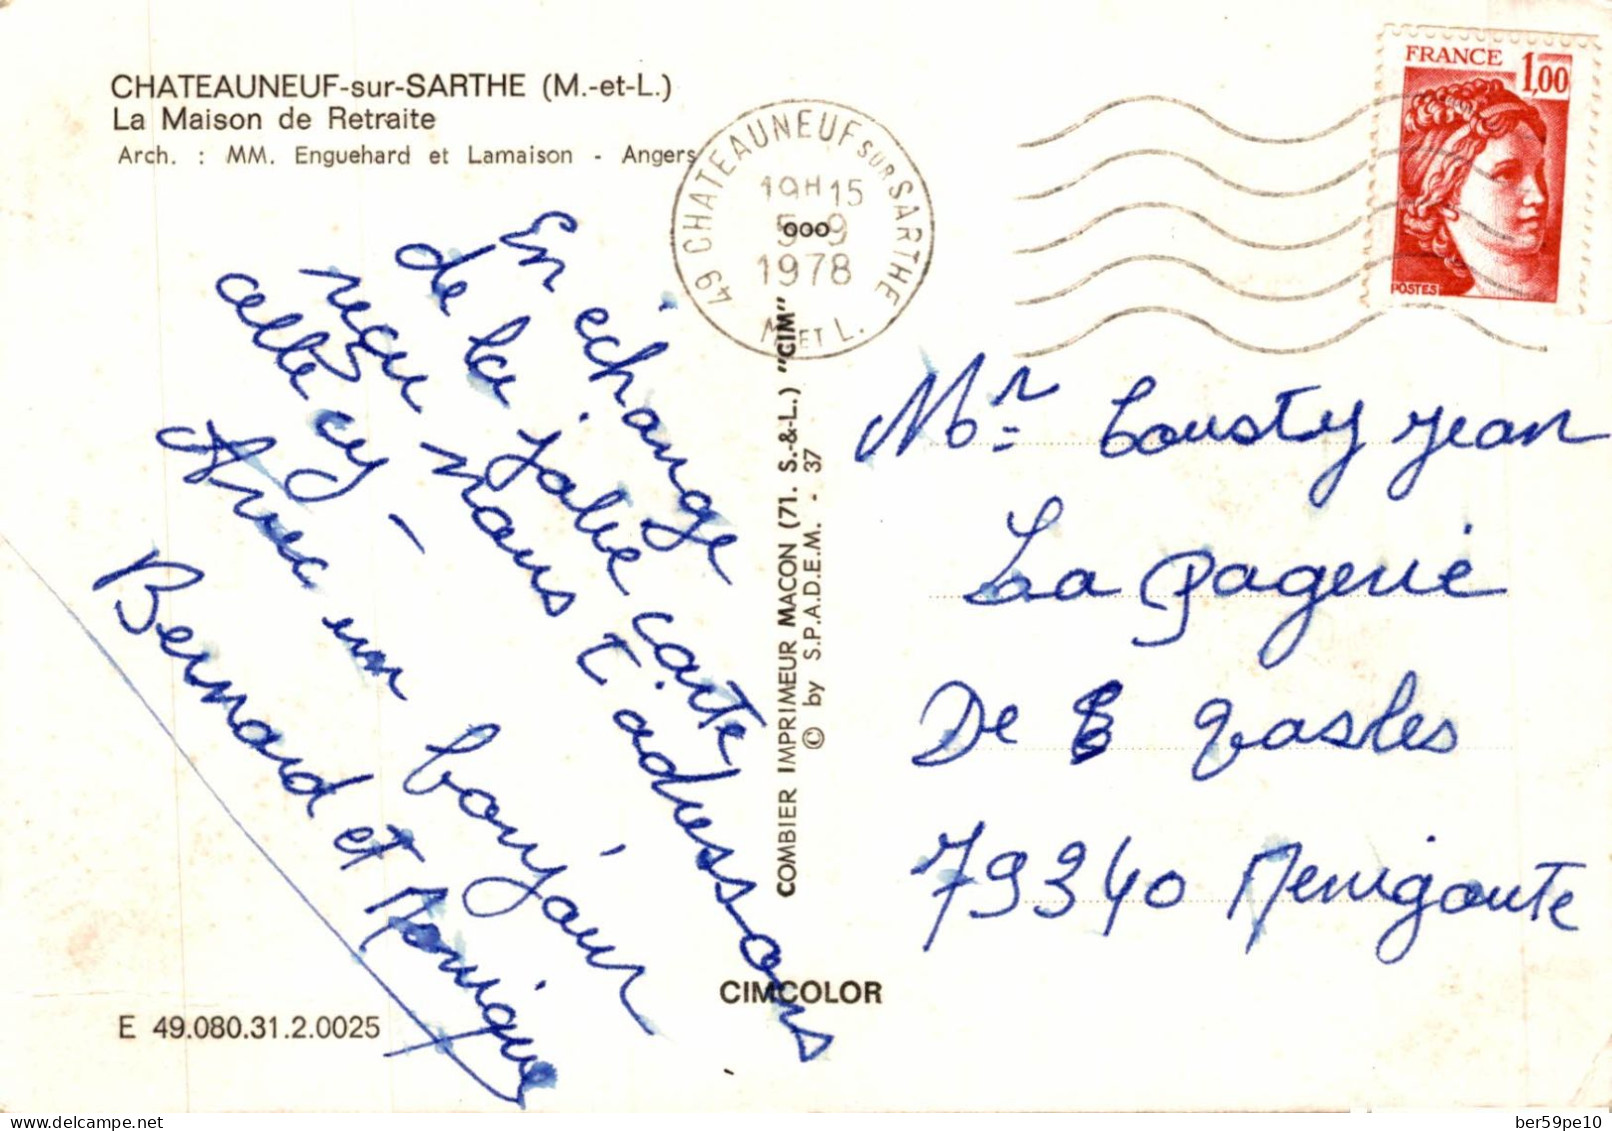 CHATEAUNEUF-sur-SARTHE (M.-et-L.)
La Maison de Retraite
Arch. : MM. Enguehard et Lamaison - Angers
49 CHATEAUNEUF SUR SARTHE
19H15
5-9
1978
M. ET L.
FRANCE 1,00
POSTES
En échange
de la jolie carte
reçu nous t'adressons
celle cy -
Avec un bonjour
Bernard et Monique
Mr Cousty Jean
La Pagerie
De Vasles
79340 Menigoute
COMBIER IMPRIMEUR MACON (71. S.-&-L.) "CIM"
© by S.P.A.D.E.M. - 37
CIMCOLOR
E 49.080.31.2.0025
ber59pe10